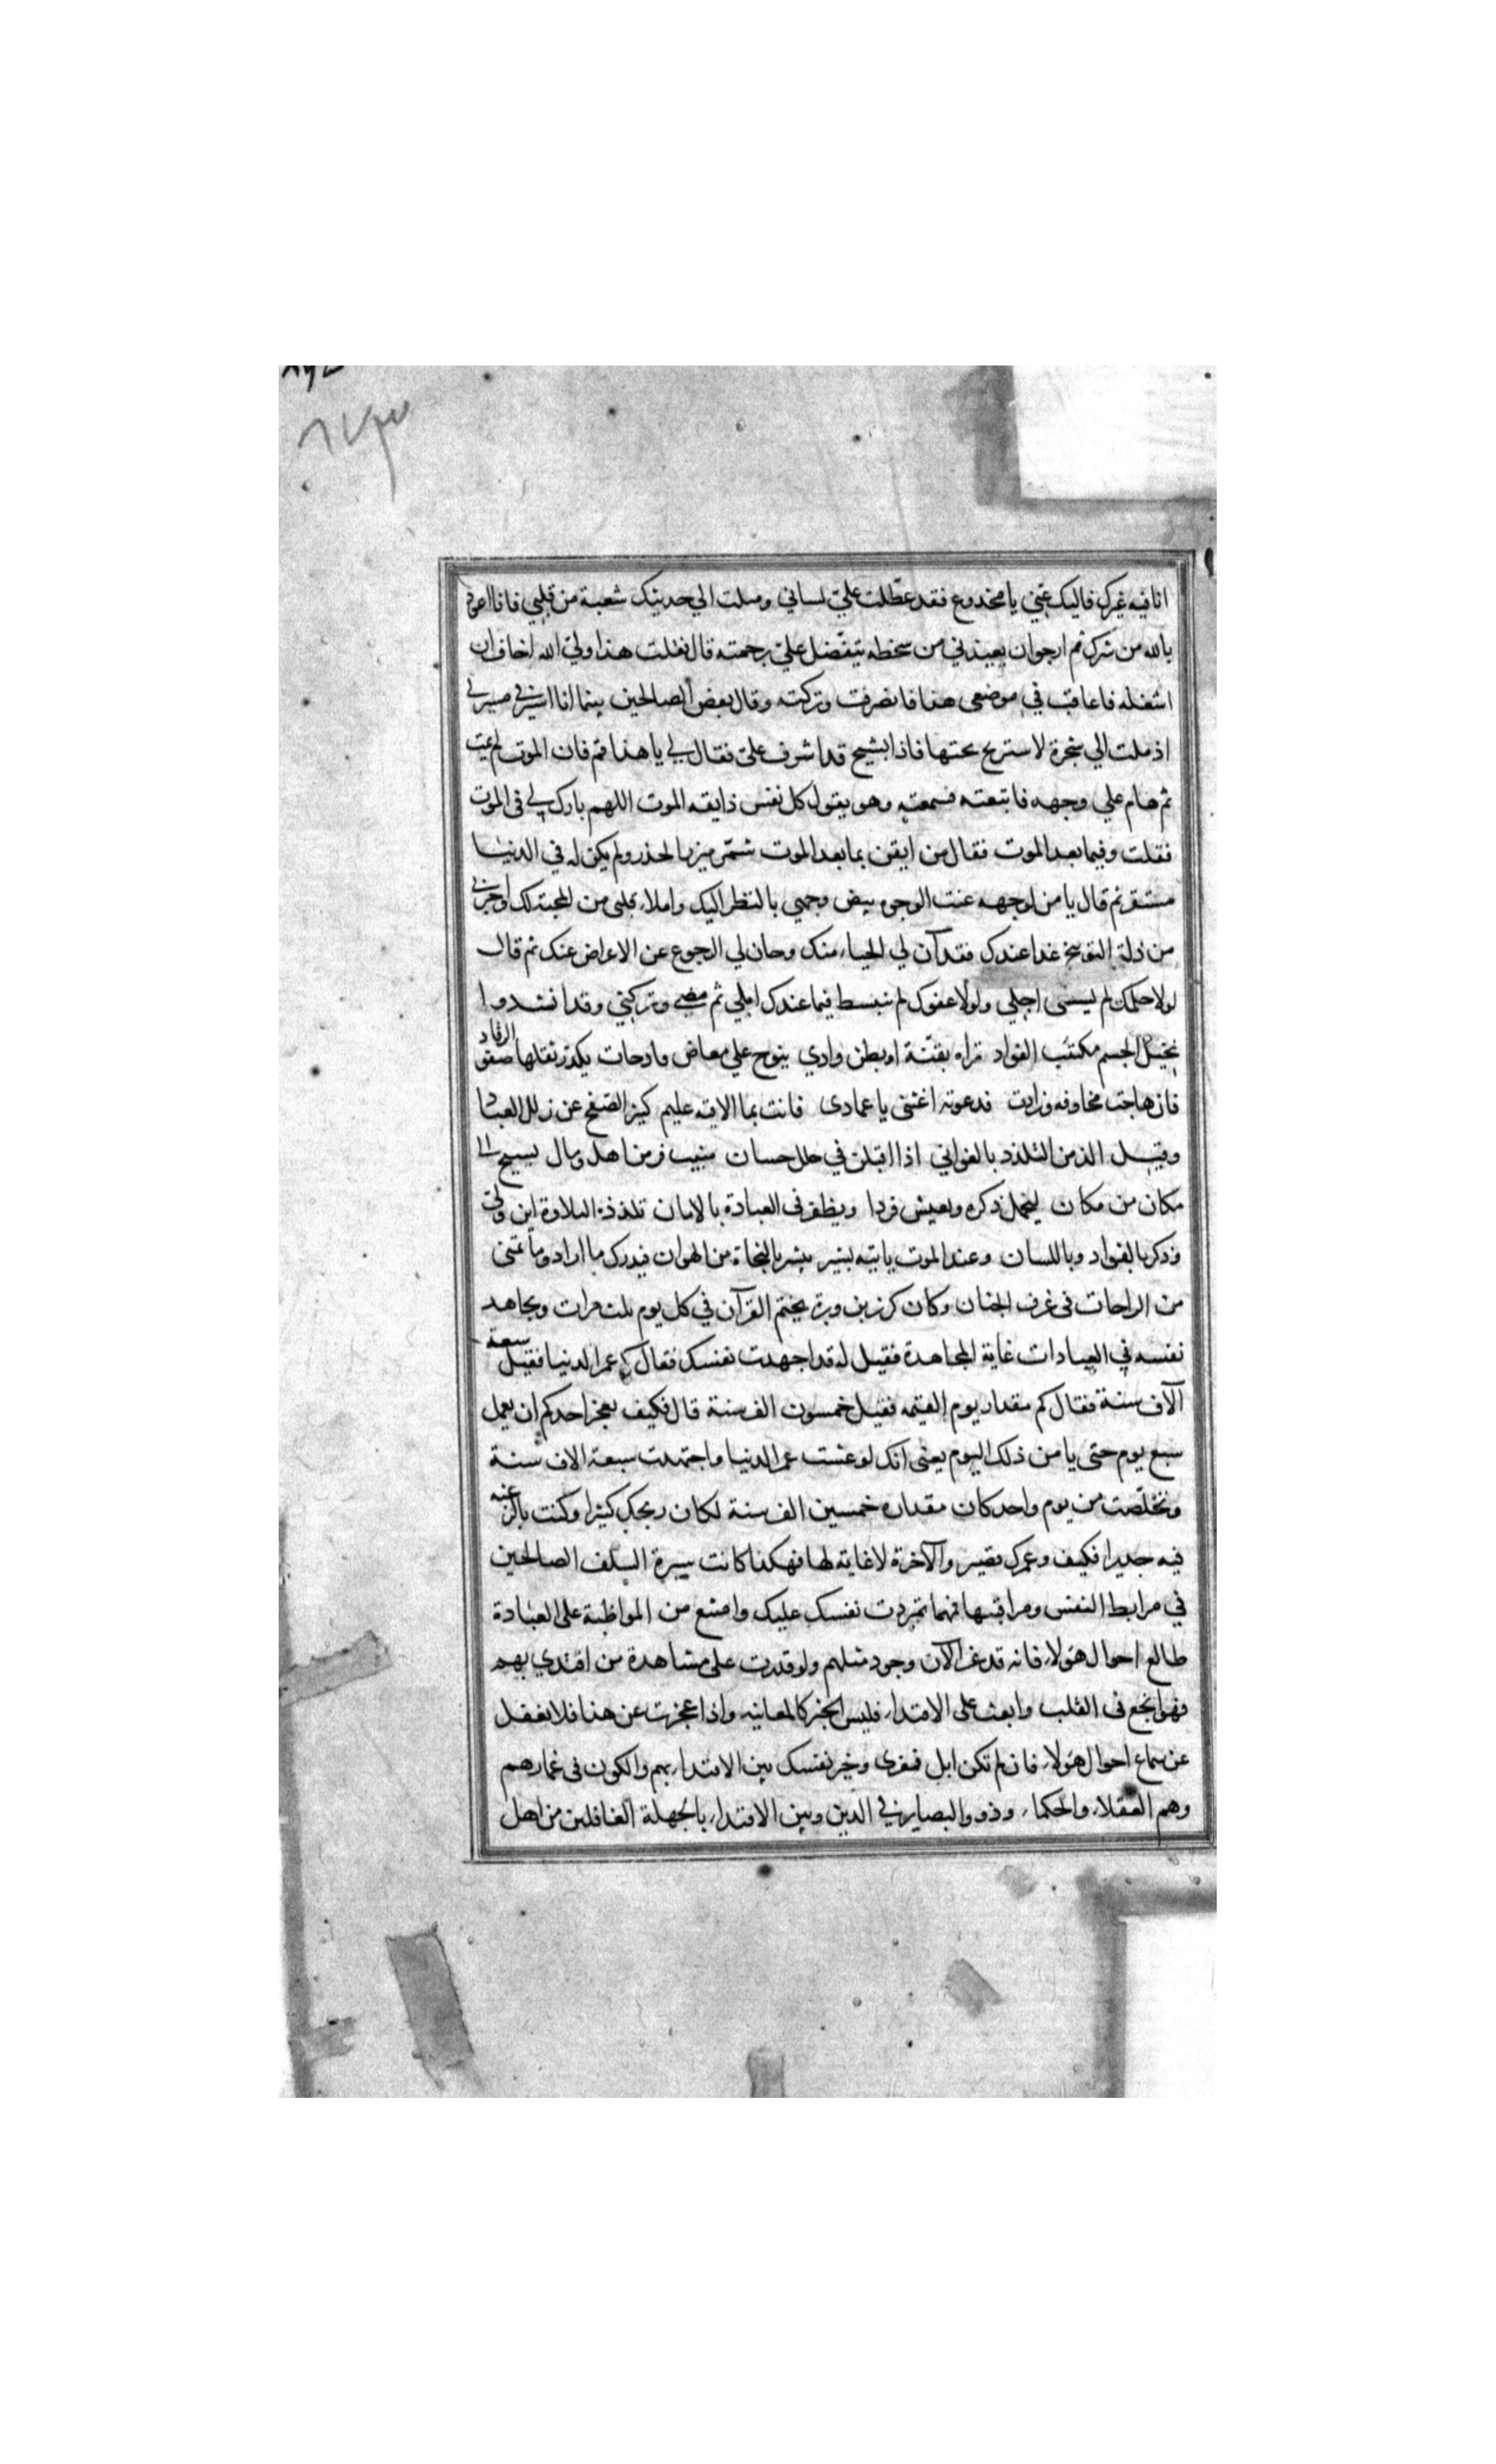 ٨٧٣
انا فيه غيرك فاليك عني يا مخدوع فقد عطّلت عليّ لساني وميلت الي حديثك شعبة من قلبي فانا اعوذ
بالله من شرك ثم ارجوان يعيذني من سخطه يتفضل عليّ برحمته قال فقلت هذا وليّ الله اخاف ان
اشغله فاعاقب في موضعي هذا فانصرفت وتركته وقال بعض الصالحين بينما انا اسير في مسيري
اذ ملت الي شجرة لاستريح تحتها فاذا بشيخ قد اشرف عليّ فقال لي يا هذا قم فان الموت لم يمت
ثم هام علي وجهه فاتبعته فسمعته وهو يقول كل نفس ذايقه الموت اللهم بارك لي في الموت
فقلت وفيما بعد الموت فقال من ايقن بما بعد الموت شمّر ميزر الحذر ولم يكن له في الدنيا
مستقر ثم قال يا من لوجهه عنت الوجوه بيض وجهي بالنظر اليك واملاء قلبي من المحبة لك واجرني
من ذلة التوبيخ غدا عندك فقد آن لي الحياء منك وحان لي الرجوع عن الاعراض عنك ثم قال
لولا حلمك لم يسعني اجلي ولولا عفوك لم ينبسط فيما عندك املي ثم مضي وتركني وقد انشدوا
نحيل الجسم مكتئب الفواد تراه بقنّة او بطن وادي ينوح علي معاض فادحات يكدر ثقلها صفو الرقاد
فان هاجت مخاوفه وزادت فدعوته اغثني يا عمادي فانت بما الاقيه عليم كثير الصفح عن زلل العباد
وقيل الذ من التلذذ بالغواني اذا اقبلن في حلل حسان منيب فر من اهل ومال يسيح الي
مكان من مكان ليخمل ذكره ويعيش فردا ويظفر في العبادة بالامان تلذذه التلاوة اين ولّي
وذكر بالفواد وباللسان وعند الموت ياتيه بشير يبشر بالنجاة من الهوان فيدرك ما اراد وما تمني
من الراحات في غرف الجنان وكان كرز بن وبرة يختم القرآن في كل يوم ثلث مرات ويجاهد
نفسه في العبادات غاية المجاهدة فقيل له قد اجهدت نفسك فقال كم عمر الدنيا فقيل سبعة
آلاف سنة فقال كم مقدار يوم القيمه فقيل خمسون الف سنة قال فكيف يعجز احدكم ان يعمل
سبع يوم حتى يامن ذلك اليوم يعني انك لو عشت عمر الدنيا واجتهدت سبعة الاف سنة
وتخلّصت من يوم واحد كان مقداره خمسين الف سنة لكان ربحك كثيرا وكنت بالرغبه
فيه جديرا فكيف وعمرك قصير والآخرة لا غاية لها فهكذا كانت سيرة السلف الصالحين
في مرابط النفس ومراقبتها فمهما تمردت نفسك عليك وامتنع من المواظبة على العبادة
طالع احوال هؤلاء فانه قد عز الآن وجود مثلهم ولو قدرت على مشاهدة من اقتدي بهم
فهو انجع في القلب وابعث على الاقتداء فليس الخبر كالمعاينه واذا عجزت عن هذا فلا تغفل
عن سماع احوال هؤلاء فان لم تكن ابل فمعزى وخير نفسك بين الاقتداء بهم والكون في غمارهم
وهم العقلاء والحكماء وذوو البصاير في الدين وبين الاقتداء بالجهلة الغافلين من اهل